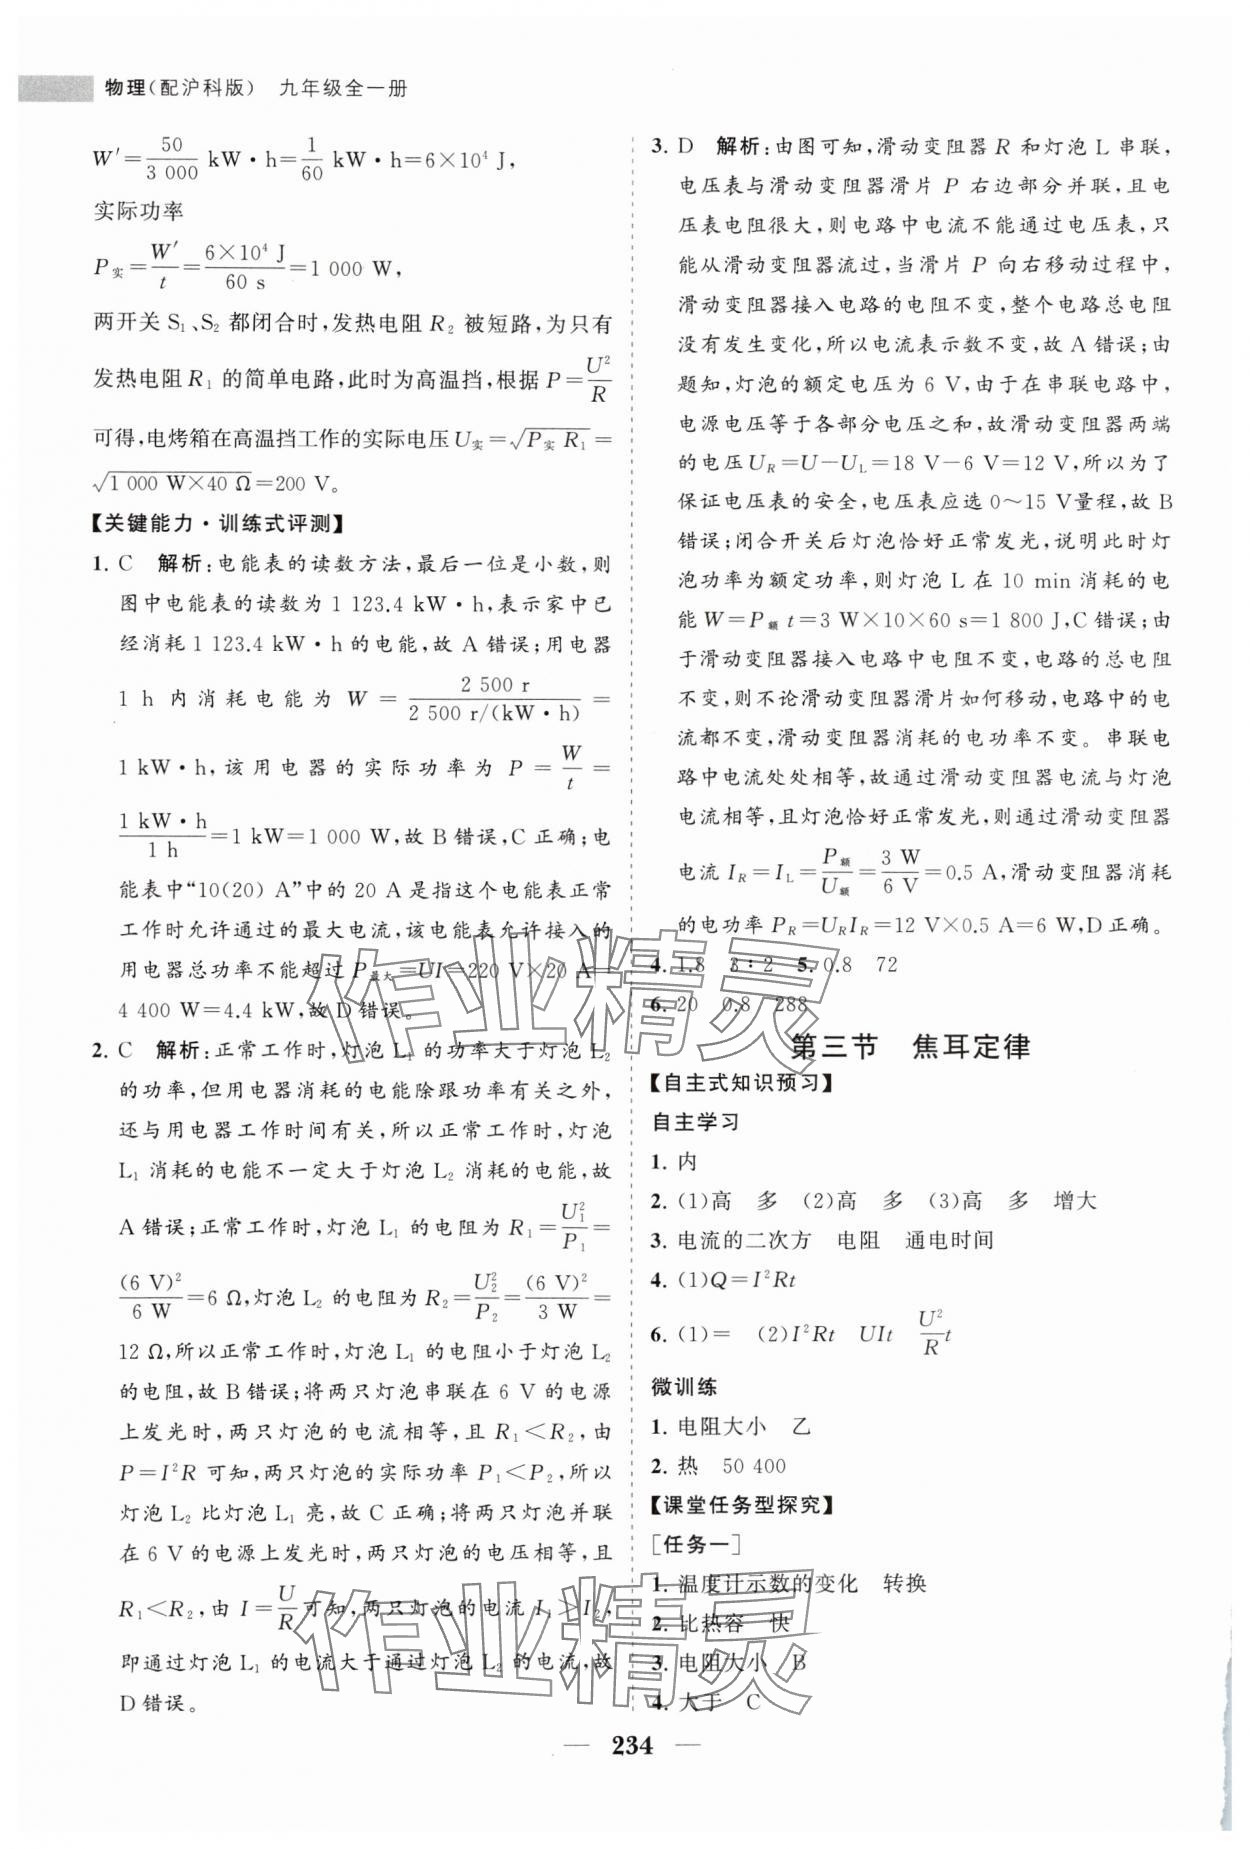 物理(配沪科版)　九年级全一册
W′=50/3 000 kW·h=1/60 kW·h=6×10⁴ J,
实际功率
P实=W′/t=6×10⁴ J/60 s=1 000 W,
两开关 S₁、S₂ 都闭合时,发热电阻 R₂ 被短路,为只有
发热电阻 R₁ 的简单电路,此时为高温挡,根据 P=U²/R
可得,电烤箱在高温挡工作的实际电压 U实=√(P实 R₁)=
√(1 000 W×40 Ω)=200 V。
【关键能力·训练式评测】
1. C　解析:电能表的读数方法,最后一位是小数,则
图中电能表的读数为 1 123.4 kW·h,表示家中已
经消耗 1 123.4 kW·h 的电能,故 A 错误;用电器
1 h 内消耗电能为 W=2 500 r/2 500 r/(kW·h)=
1 kW·h,该用电器的实际功率为 P=W/t=
1 kW·h/1 h=1 kW=1 000 W,故 B 错误,C 正确;电
能表中“10(20) A”中的 20 A 是指这个电能表正常
工作时允许通过的最大电流,该电能表允许接入的
用电器总功率不能超过 P最大=UI=220 V×20 A=
4 400 W=4.4 kW,故 D 错误。
2. C　解析:正常工作时,灯泡 L₁ 的功率大于灯泡 L₂
的功率,但用电器消耗的电能除跟功率有关之外,
还与用电器工作时间有关,所以正常工作时,灯泡
L₁ 消耗的电能不一定大于灯泡 L₂ 消耗的电能,故
A 错误;正常工作时,灯泡 L₁ 的电阻为 R₁=U₁²/P₁=
(6 V)²/6 W=6 Ω,灯泡 L₂ 的电阻为 R₂=U₂²/P₂=(6 V)²/3 W=
12 Ω,所以正常工作时,灯泡 L₁ 的电阻小于灯泡 L₂
的电阻,故 B 错误;将两只灯泡串联在 6 V 的电源
上发光时,两只灯泡的电流相等,且 R₁<R₂,由
P=I²R 可知,两只灯泡的实际功率 P₁<P₂,所以
灯泡 L₂ 比灯泡 L₁ 亮,故 C 正确;将两只灯泡并联
在 6 V 的电源上发光时,两只灯泡的电压相等,且
R₁<R₂,由 I=U/R可知,两只灯泡的电流 I₁>I₂,
即通过灯泡 L₁ 的电流大于通过灯泡 L₂ 的电流,故
D 错误。
3. D　解析:由图可知,滑动变阻器 R 和灯泡 L 串联,
电压表与滑动变阻器滑片 P 右边部分并联,且电
压表电阻很大,则电路中电流不能通过电压表,只
能从滑动变阻器流过,当滑片 P 向右移动过程中,
滑动变阻器接入电路的电阻不变,整个电路总电阻
没有发生变化,所以电流表示数不变,故 A 错误;由
题知,灯泡的额定电压为 6 V,由于在串联电路中,
电源电压等于各部分电压之和,故滑动变阻器两端
的电压 U_R=U−U_L=18 V−6 V=12 V,所以为了
保证电压表的安全,电压表应选 0～15 V量程,故 B
错误;闭合开关后灯泡恰好正常发光,说明此时灯
泡功率为额定功率,则灯泡 L 在 10 min 消耗的电
能 W=P额 t=3 W×10×60 s=1 800 J,C 错误;由
于滑动变阻器接入电路中电阻不变,电路的总电阻
不变,则不论滑动变阻器滑片如何移动,电路中的电
流都不变,滑动变阻器消耗的电功率不变。串联电
路中电流处处相等,故通过滑动变阻器电流与灯泡
电流相等,且灯泡恰好正常发光,则通过滑动变阻器
电流 I_R=I_L=P额/U额=3 W/6 V=0.5 A,滑动变阻器消耗
的电功率 P_R=U_R I_R=12 V×0.5 A=6 W,D 正确。
4. 1.8　3∶2　5. 0.8　72
6. 20　0.8　288
第三节　焦耳定律
【自主式知识预习】
自主学习
1. 内
2. (1)高　多　(2)高　多　(3)高　多　增大
3. 电流的二次方　电阻　通电时间
4. (1)Q=I²Rt
6. (1)=　(2)I²Rt　UIt　U²/R t
微训练
1. 电阻大小　乙
2. 热　50 400
【课堂任务型探究】
[任务一]
1. 温度计示数的变化　转换
2. 比热容　快
3. 电阻大小　B
4. 大于　C
— 234 —
作业精灵
作业精灵